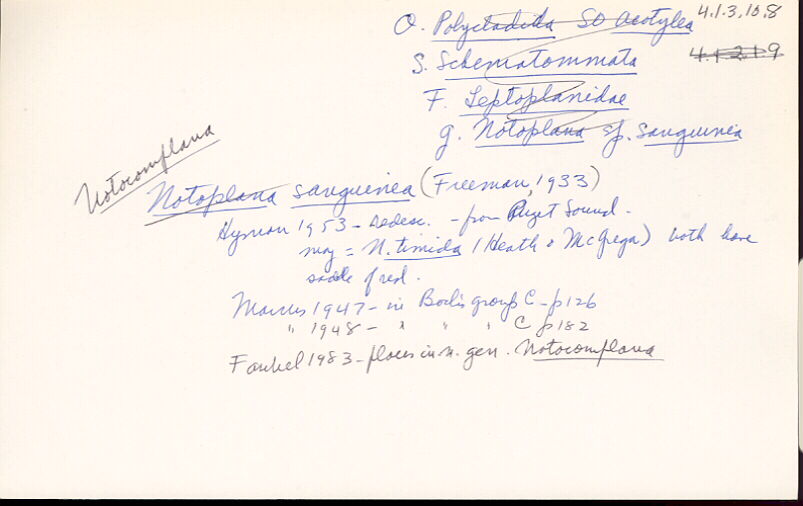 O. Polycladida SO Acotylea 4.1.3.10.8
S. Schematommata 4.1.2.1.9
F. Leptoplanidae
g. Notoplana sp. sanguinea
Notocomplana
Notoplana sanguinea (Freeman, 1933)
Hyman 1953 - redesc. - from Puget Sound.
may = N. timida (Heath & McGregor) both have
of red.
Marcus 1947 - in Bock's group C - p 126
" 1948 - " " " C p 182
Faubel 1983 - places in n. gen. Notocomplana